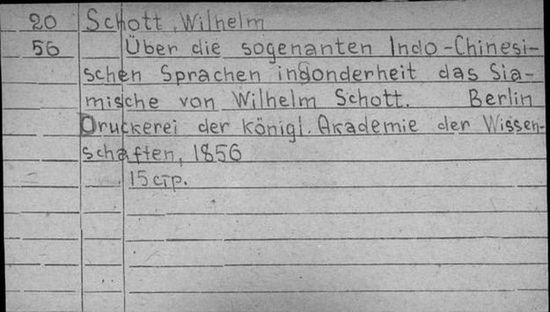 20 Schott, Wilhelm
56 Über die sogenanten Indo-Chinesi-
schen Sprachen indonderheit das Sia-
mische von Wilhelm Schott. Berlin
Druckerei der königl. Akademie der Wissen-
schaften, 1856
15 стр.